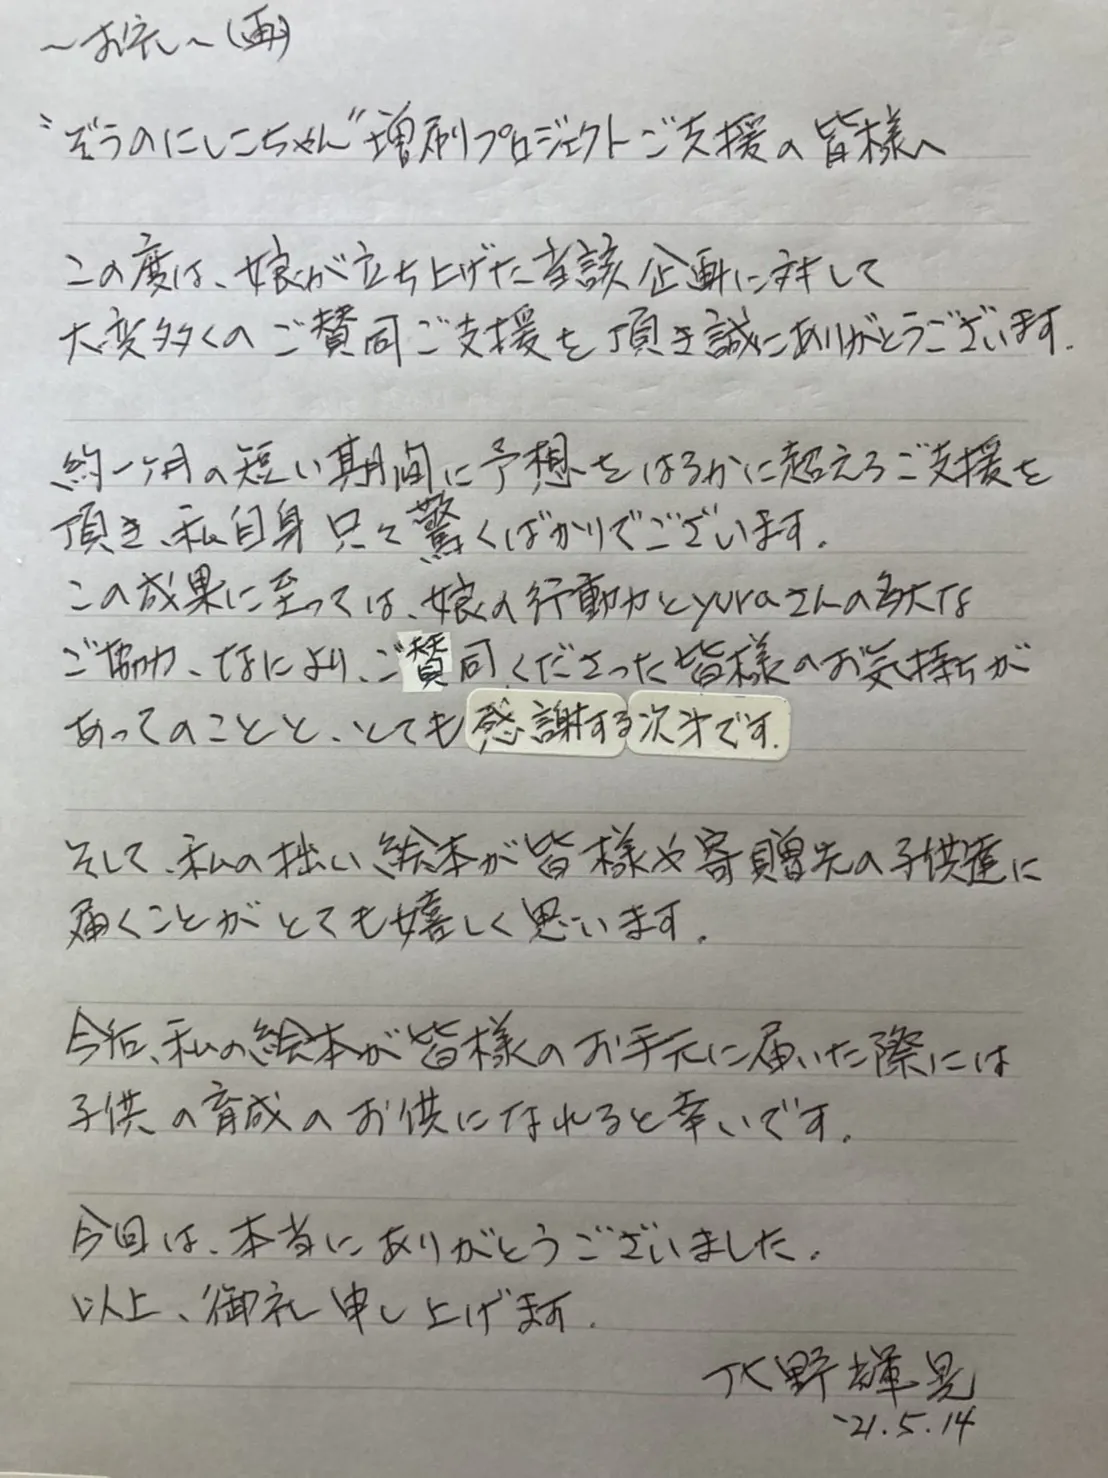 ~お礼~(画)
"ぞうのにしこちゃん"増刷プロジェクトご支援の皆様へ
この度は、娘が立ち上げた当該企画に対して
大変多くのご賛同ご支援を頂き誠にありがとうございます.
約一ヶ月の短い期間に予想をはるかに超えるご支援を
頂き、私自身只々驚くばかりでございます.
この成果に至っては、娘の行動力とyuraさんの多大な
ご協力、なにより、ご賛同くださった皆様のお気持ちが
あってのことと、とても感謝する次才です.
そして、私の拙い絵本が皆様や寄贈先の子供達に
届くことがとても嬉しく思います.
今后、私の絵本が皆様のお手元に届いた際には
子供の育成のお供になれると幸いです.
今回は、本当にありがとうございました.
以上、御礼申し上げます.
水野輝晃
'21.5.14